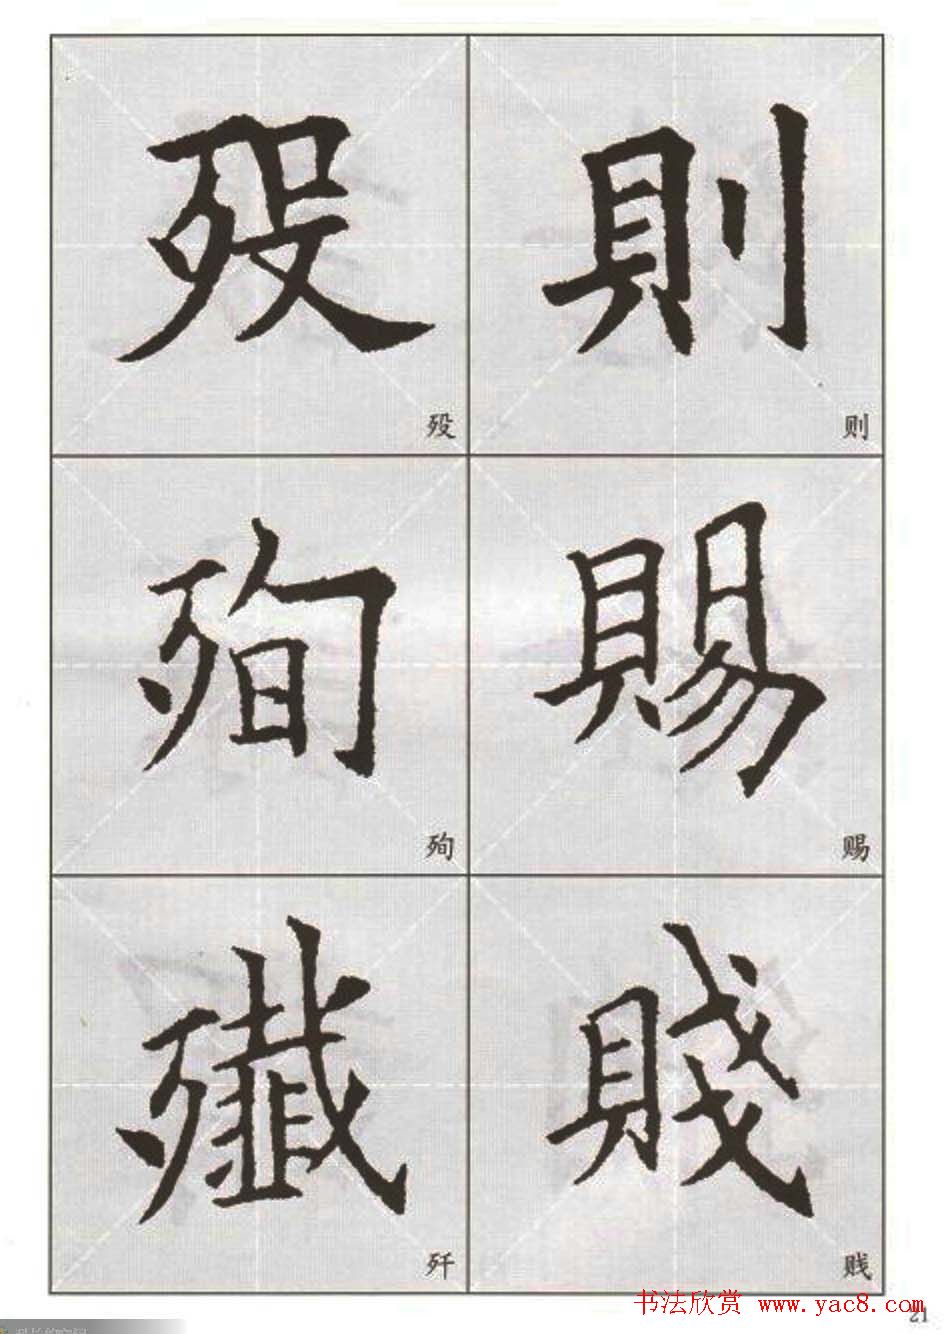 殁 則
殁 则
殉 賜
殉 赐
殲 賤
歼 贱
书法欣赏 www.yac8.com
21